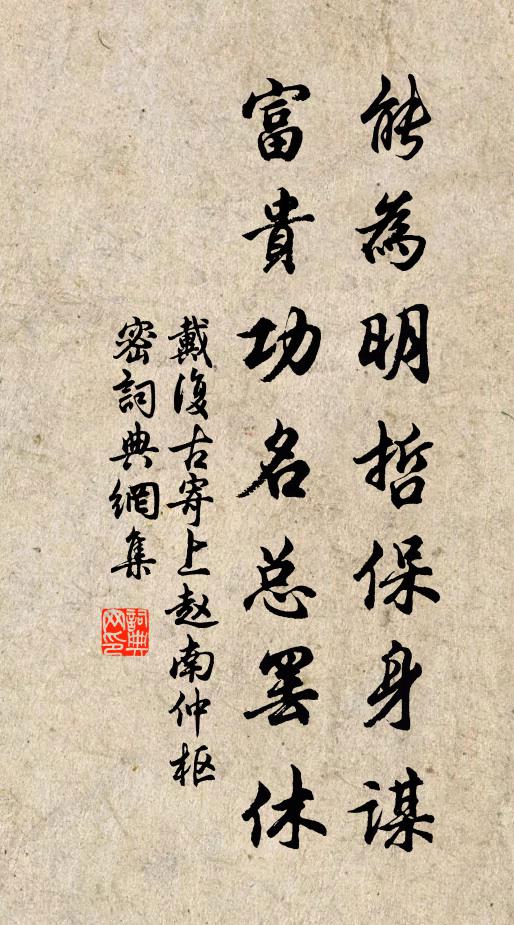 能為明哲保身謀
富貴功名总罢休
戴復古寄上赵南仲枢
密詞典網集
詞典
网印